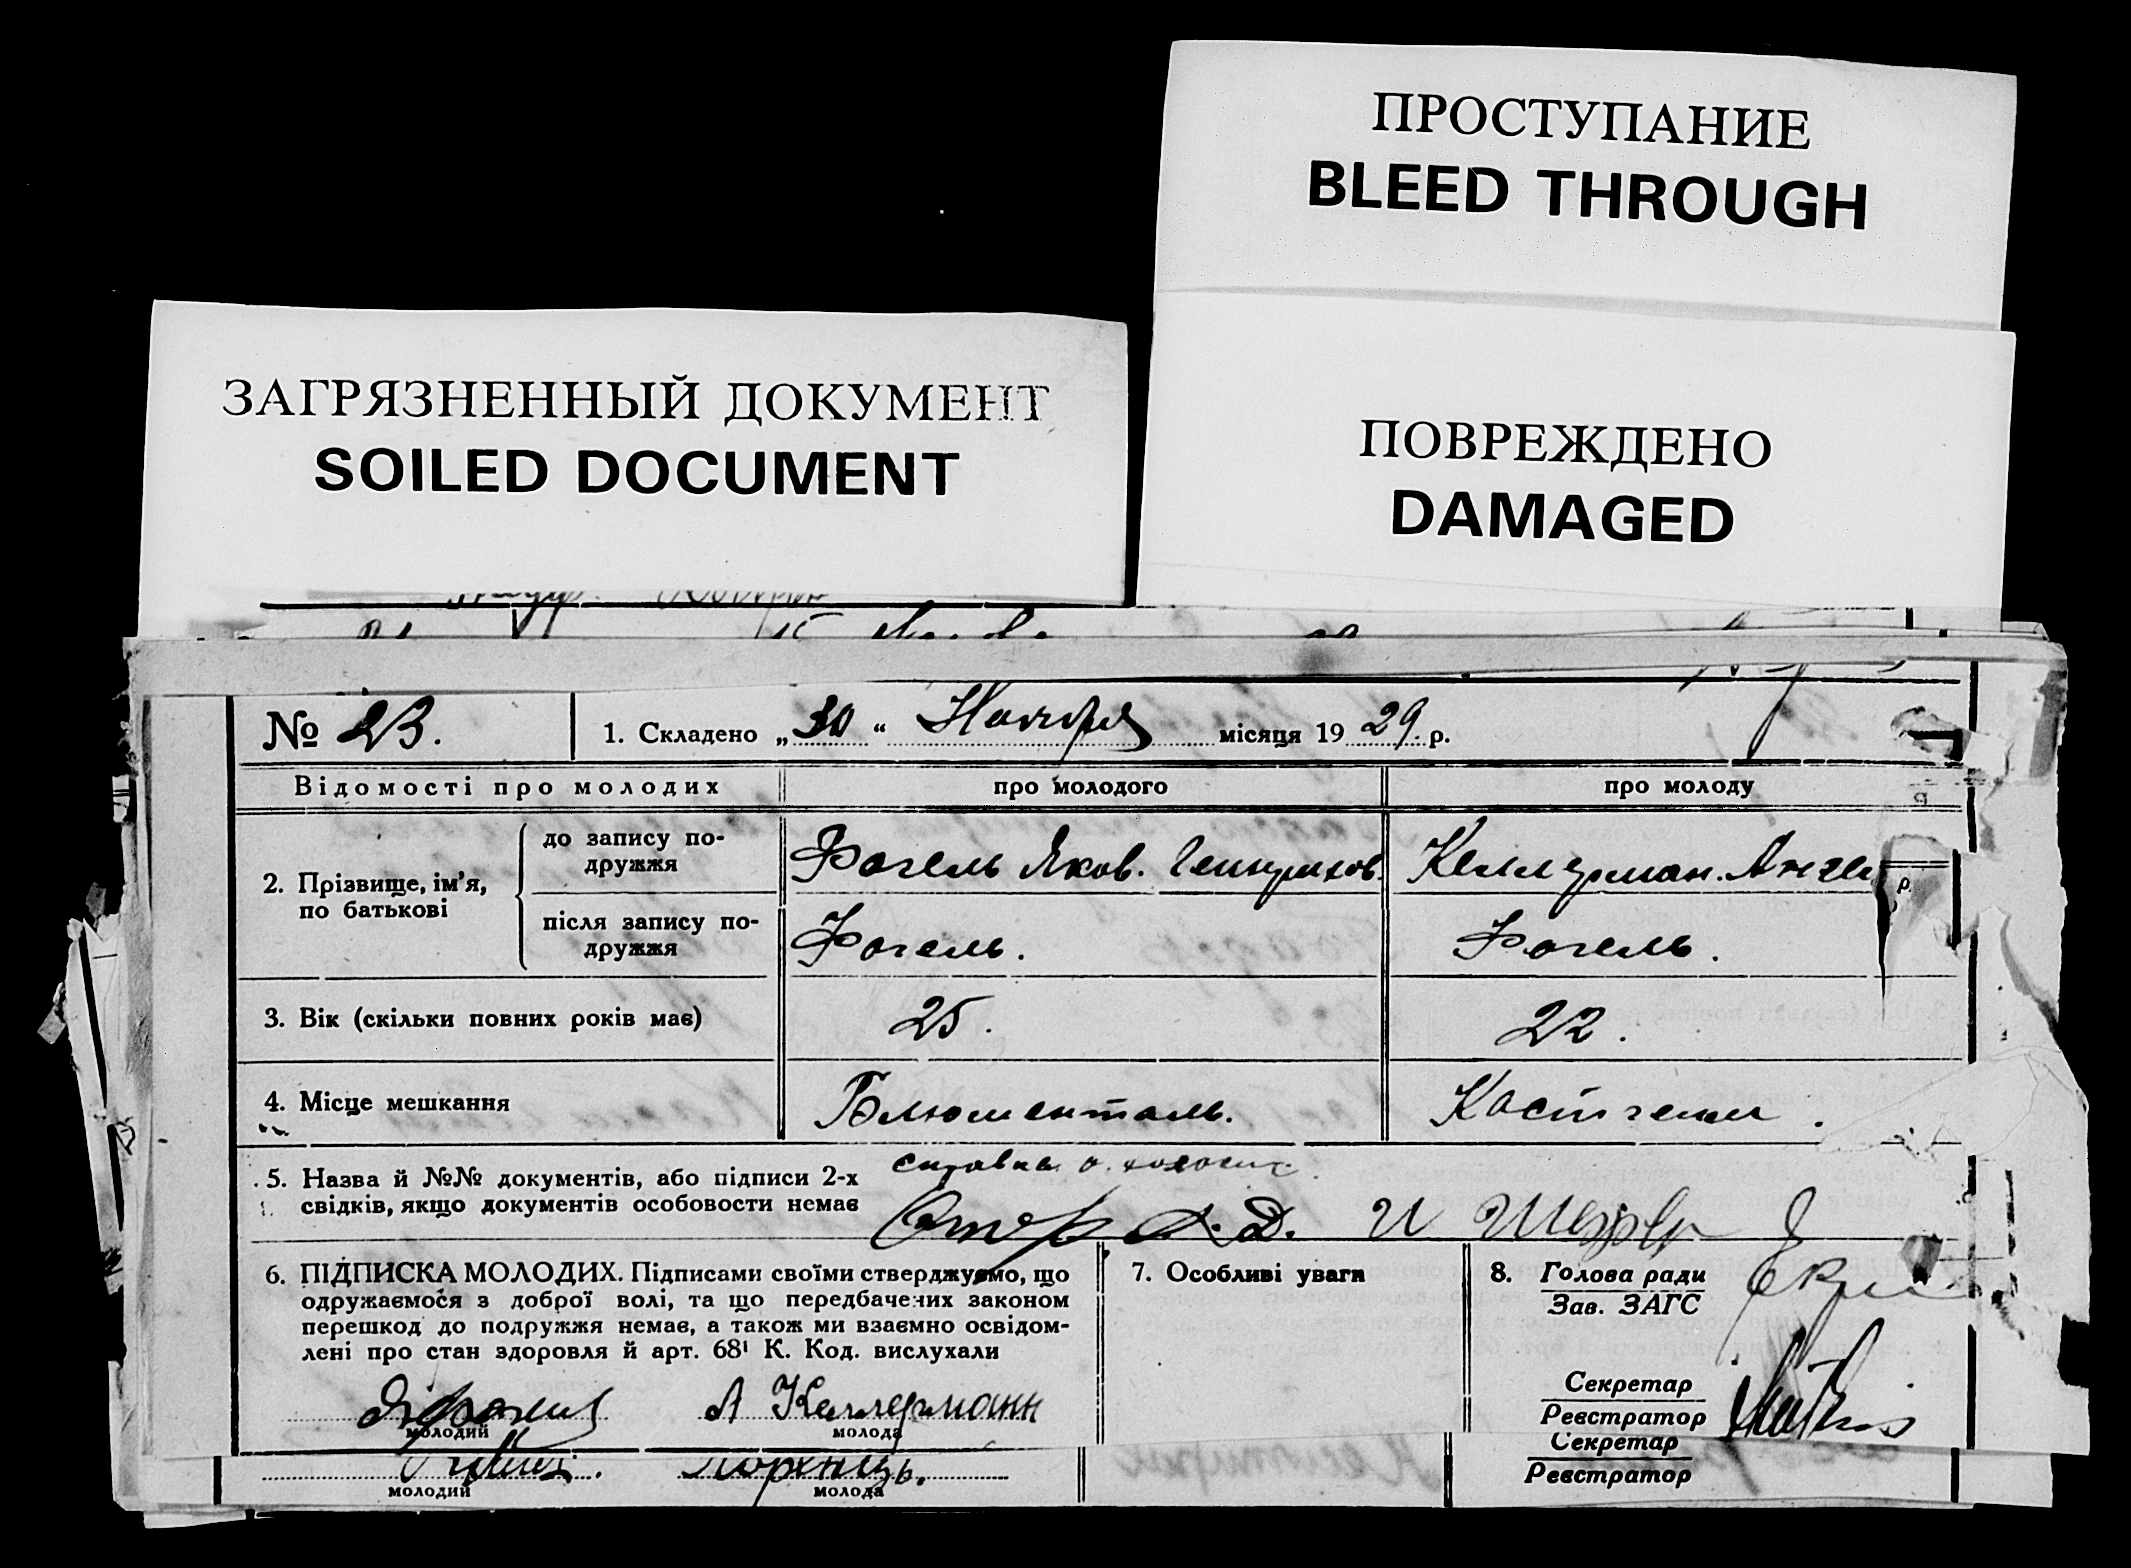 ПРОСТУПАНИЕ
BLEED THROUGH
ЗАГРЯЗНЕННЫЙ ДОКУМЕНТ
SOILED DOCUMENT
ПОВРЕЖДЕНО
DAMAGED
№ 23. 1. Складено „30“ Ноября місяця 1929 р.
Відомості про молодих про молодого про молоду
2. Прізвище, ім'я, по батькові
до запису по-
дружжя
Фогель Яков. Генрихов. Келлерман. Анге
після запису по-
дружжя
Фогель. Фогель.
3. Вік (скільки повних років має) 25. 22.
4. Місце мешкання Блюменталь. Костгейм.
5. Назва й №№ документів, або підписи 2-х
свідків, якщо документів особовости немає
справка о
и
6. ПІДПИСКА МОЛОДИХ. Підписами своїми стверджуємо, що
одружаємося з доброї волі, та що передбачених законом
перешкод до подружжя немає, а також ми взаємно освідом-
лені про стан здоровля й арт. 68¹ К. Код. вислухали
А Келлерманн
молодий молода
7. Особливі уваги
8. Голова ради
Зав. ЗАГС
Секретар
Реєстратор
Секретар
Реєстратор
молодий молода